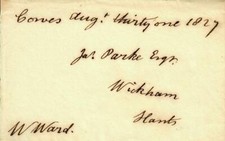 Cowes Augt. thirty one 1827
Jas. Parke Esqr.
Wickham
Hants
W Ward.